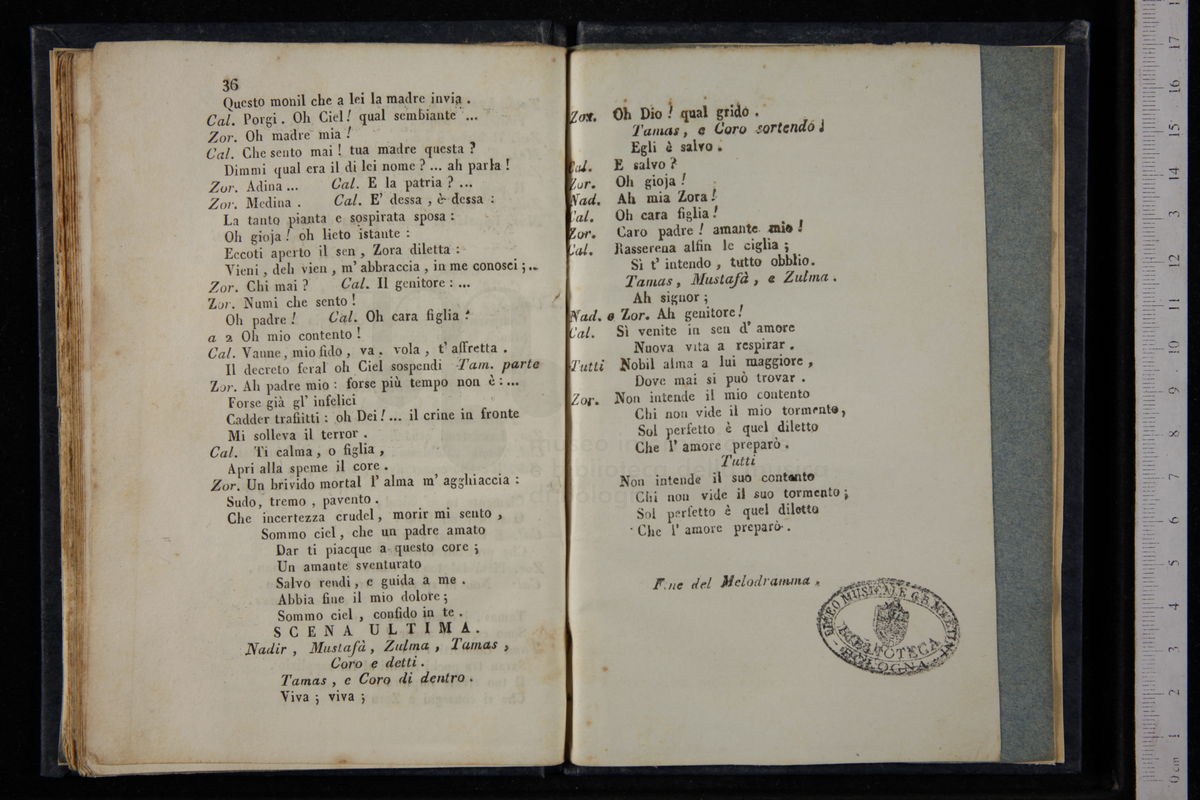 36
Questo monil che a lei la madre invia .
Cal. Porgi . Oh Ciel! qual sembiante ...
Zor. Oh madre mia !
Cal. Che sento mai ! tua madre questa ?
Dimmi qual era il di lei nome ? ... ah parla !
Zor. Adina ... Cal. E la patria ? ...
Zor. Medina . Cal. E' dessa , è dessa :
La tanto pianta e sospirata sposa :
Oh gioja ! oh lieto istante :
Eccoti aperto il sen , Zora diletta :
Vieni , deh vien , m' abbraccia , in me conosci ; ...
Zor. Chi mai ? Cal. Il genitore : ...
Zor. Numi che sento !
Oh padre ! Cal. Oh cara figlia !
a 2 Oh mio contento !
Cal. Vanne , mio fido , va . vola , t' affretta .
Il decreto feral oh Ciel sospendi Tam. parte
Zor. Ah padre mio : forse più tempo non è : ...
Forse già gl' infelici
Cadder trafitti : oh Dei ! ... il crine in fronte
Mi solleva il terror .
Cal. Ti calma , o figlia ,
Apri alla speme il core .
Zor. Un brivido mortal l' alma m' agghiaccia :
Sudo , tremo , pavento .
Che incertezza crudel , morir mi sento ,
Sommo ciel , che un padre amato
Dar ti piacque a questo core ;
Un amante sventurato
Salvo rendi , e guida a me .
Abbia fine il mio dolore ;
Sommo ciel , confido in te .
SCENA ULTIMA.
Nadir , Mustafà , Zulma , Tamas ,
Coro e detti .
Tamas , e Coro di dentro .
Viva ; viva ;
Zor. Oh Dio ! qual grido .
Tamas , e Coro sortendo
Egli è salvo .
Cal. E salvo ?
Zor. Oh gioja !
Nad. Ah mia Zora !
Cal. Oh cara figlia !
Zor. Caro padre ! amante mio !
Cal. Rasserena alfin le ciglia ;
Sì t' intendo , tutto obblìo.
Tamas , Mustafà , e Zulma .
Ah signor ;
Nad. e Zor. Ah genitore !
Cal. Sì venite in sen d' amore
Nuova vita a respirar .
Tutti Nobil alma a lui maggiore ,
Dove mai si può trovar .
Zor. Non intende il mio contento
Chi non vide il mio tormento,
Sol perfetto è quel diletto
Che l' amore preparò .
Tutti
Non intende il suo contento
Chi non vide il suo tormento ;
Sol perfetto è quel diletto
Che l' amore preparò .
Fine del Melodramma .
LICEO MUSICALE G.B. MARTINI
BIBLIOTECA
- BOLOGNA -
museo in
biblioteca della
bologna
0 cm 1 2 3 4 5 6 7 8 9 10 11 12 13 14 15 16 17